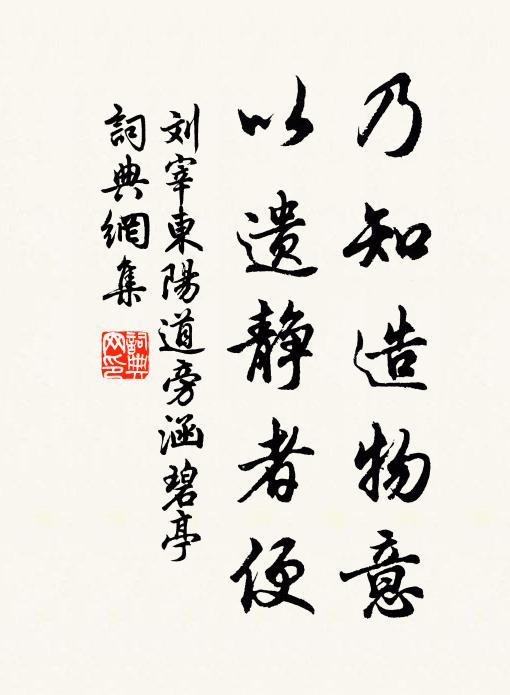 乃知造物意
以遗静者便
刘宰東陽道旁涵碧亭
詞典網集
詞典网印